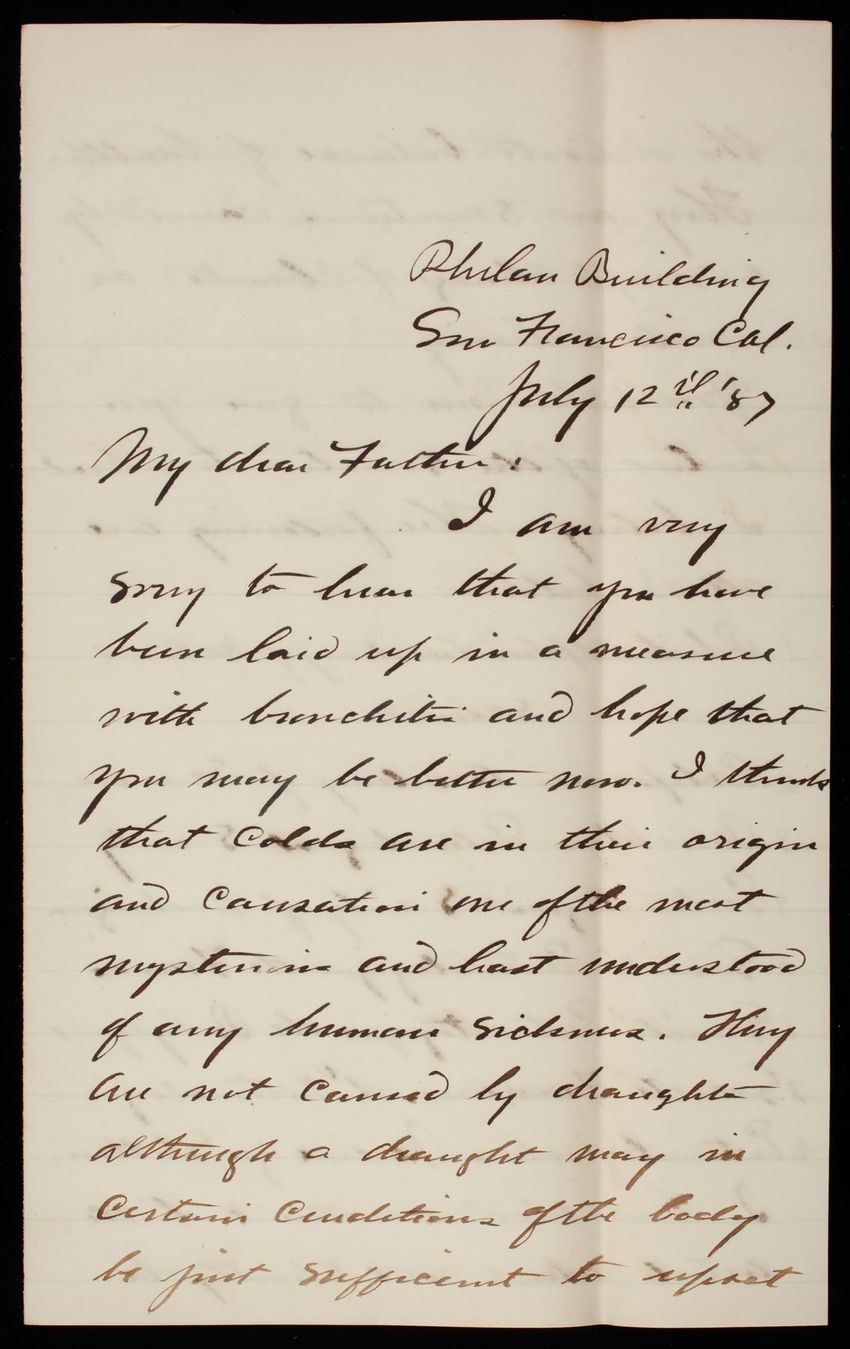 Phelan Building
San Francisco Cal.
July 12th '87
My dear Father:
I am very
sorry to hear that you have
been laid up in a measure
with bronchitis and hope that
you may be better now. I think
that Colds are in their origin
and Causation one of the most
mysterious and least understood
of any human Sickness. They
are not Caused by draughts
although a draught may in
Certain Conditions of the body
be just sufficient to upset